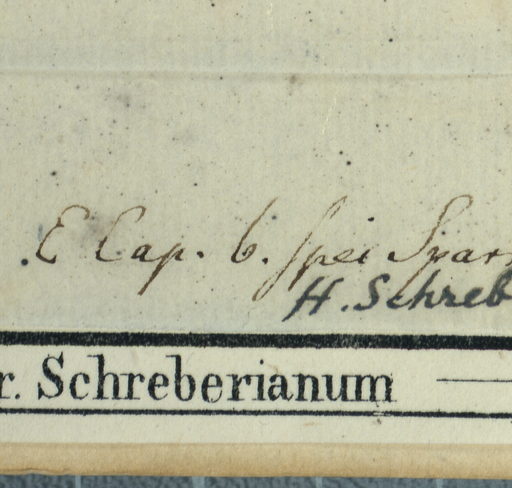 E Cap. b. Spei Sparr
H. Schreb
r. Schreberianum